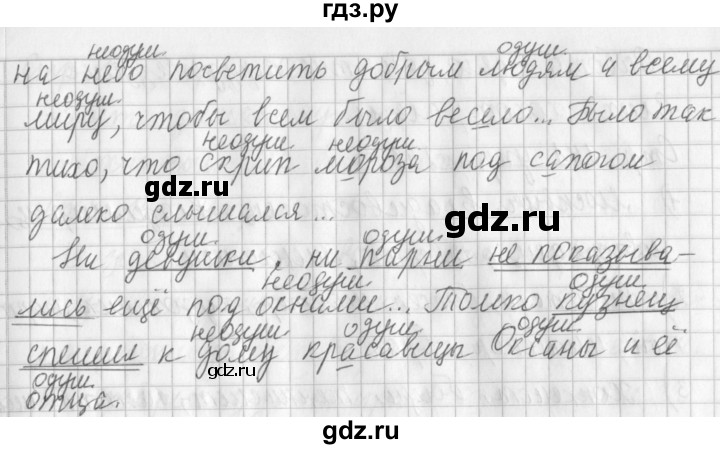 гдз.ру
неодуш. одуш.
на небо посветить добрым людям и всему
неодуш.
миру, чтобы всем было весело... Было так
неодуш. неодуш.
тихо, что скрип мороза под сапогом
gdz.ru gdz.ru
далеко слышался...
одуш. одуш.
Ни девушки, ни парни не показыва-
неодуш. одуш.
лись ещё под окнами... Только кузнец
неодуш. одуш. одуш.
спешил к дому красавицы Оксаны и её
одуш.
отца.
gdz.ru gdz.ru